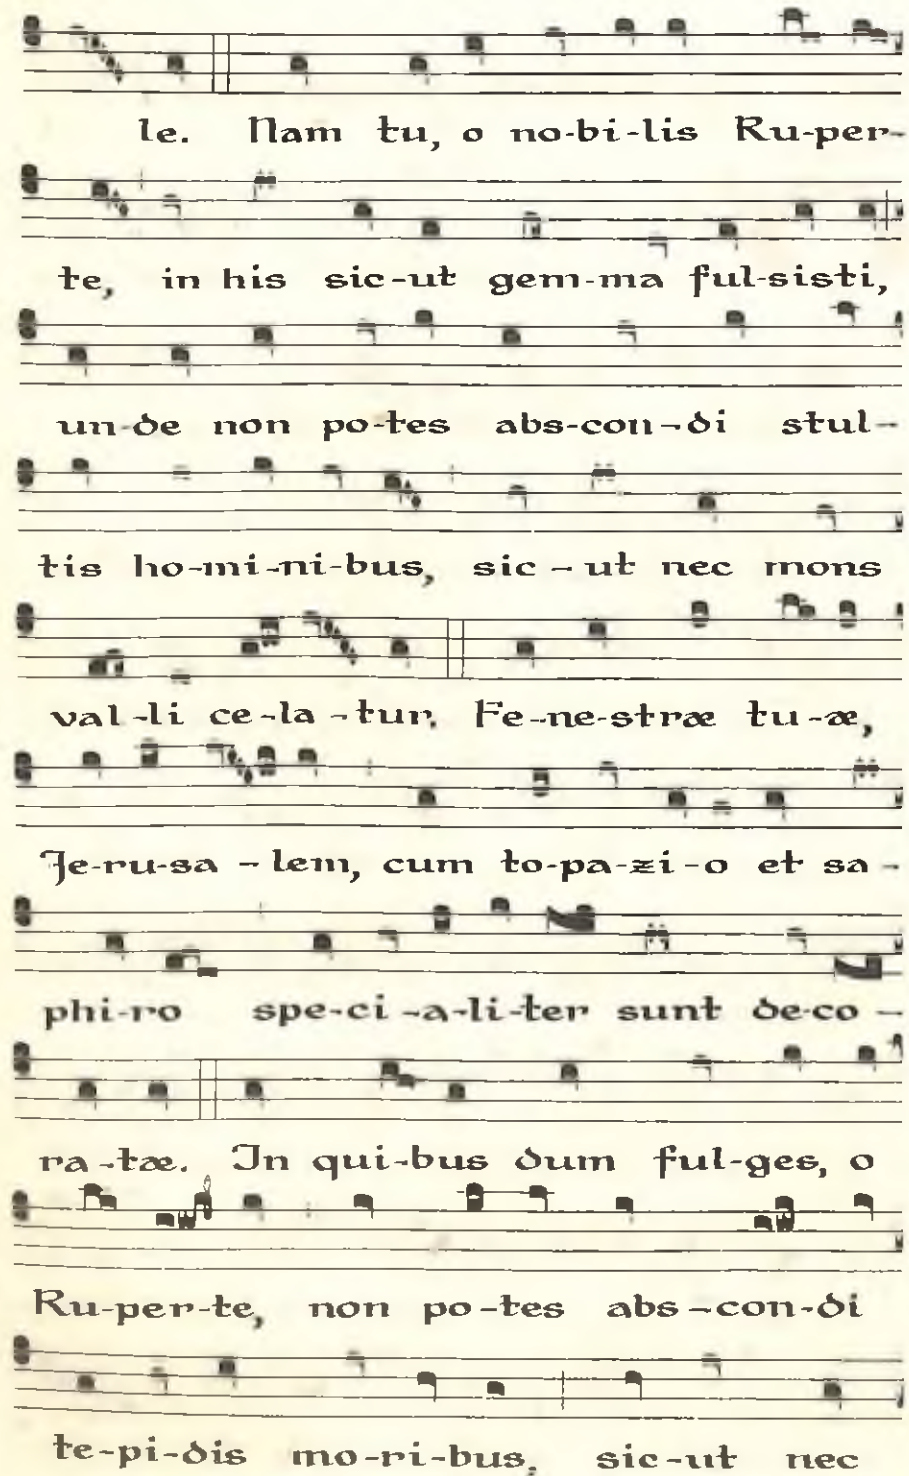 le. Nam tu, o no-bi-lis Ru-per-
te, in his sic-ut gem-ma ful-sisti,
un-de non po-tes abs-con-di stul-
tis ho-mi-ni-bus, sic-ut nec mons
val-li ce-la-tur. Fe-ne-stræ tu-æ,
Je-ru-sa-lem, cum to-pa-zi-o et sa-
phi-ro spe-ci-a-li-ter sunt de-co-
ra-tæ. In qui-bus dum ful-ges, o
Ru-per-te, non po-tes abs-con-di
te-pi-dis mo-ri-bus, sic-ut nec